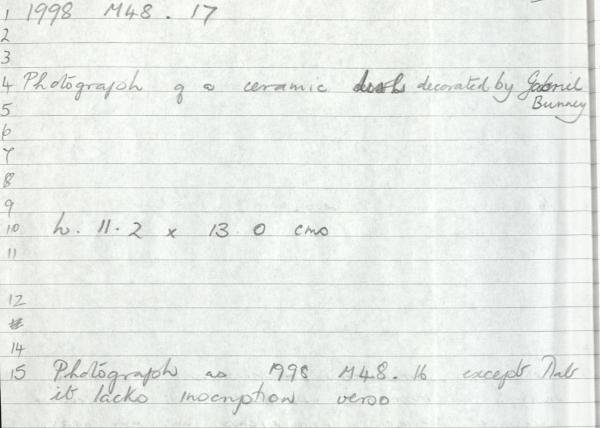 1 1998 M48.17
2
3
4 Photograph of a ceramic dish decorated by Gabriel
5 Bunney
6
7
8
9
10 h. 11.2 x 13 0 cms
11
12
14
15 Photograph as 1998 M48.16 except that
it lacks inscription verso